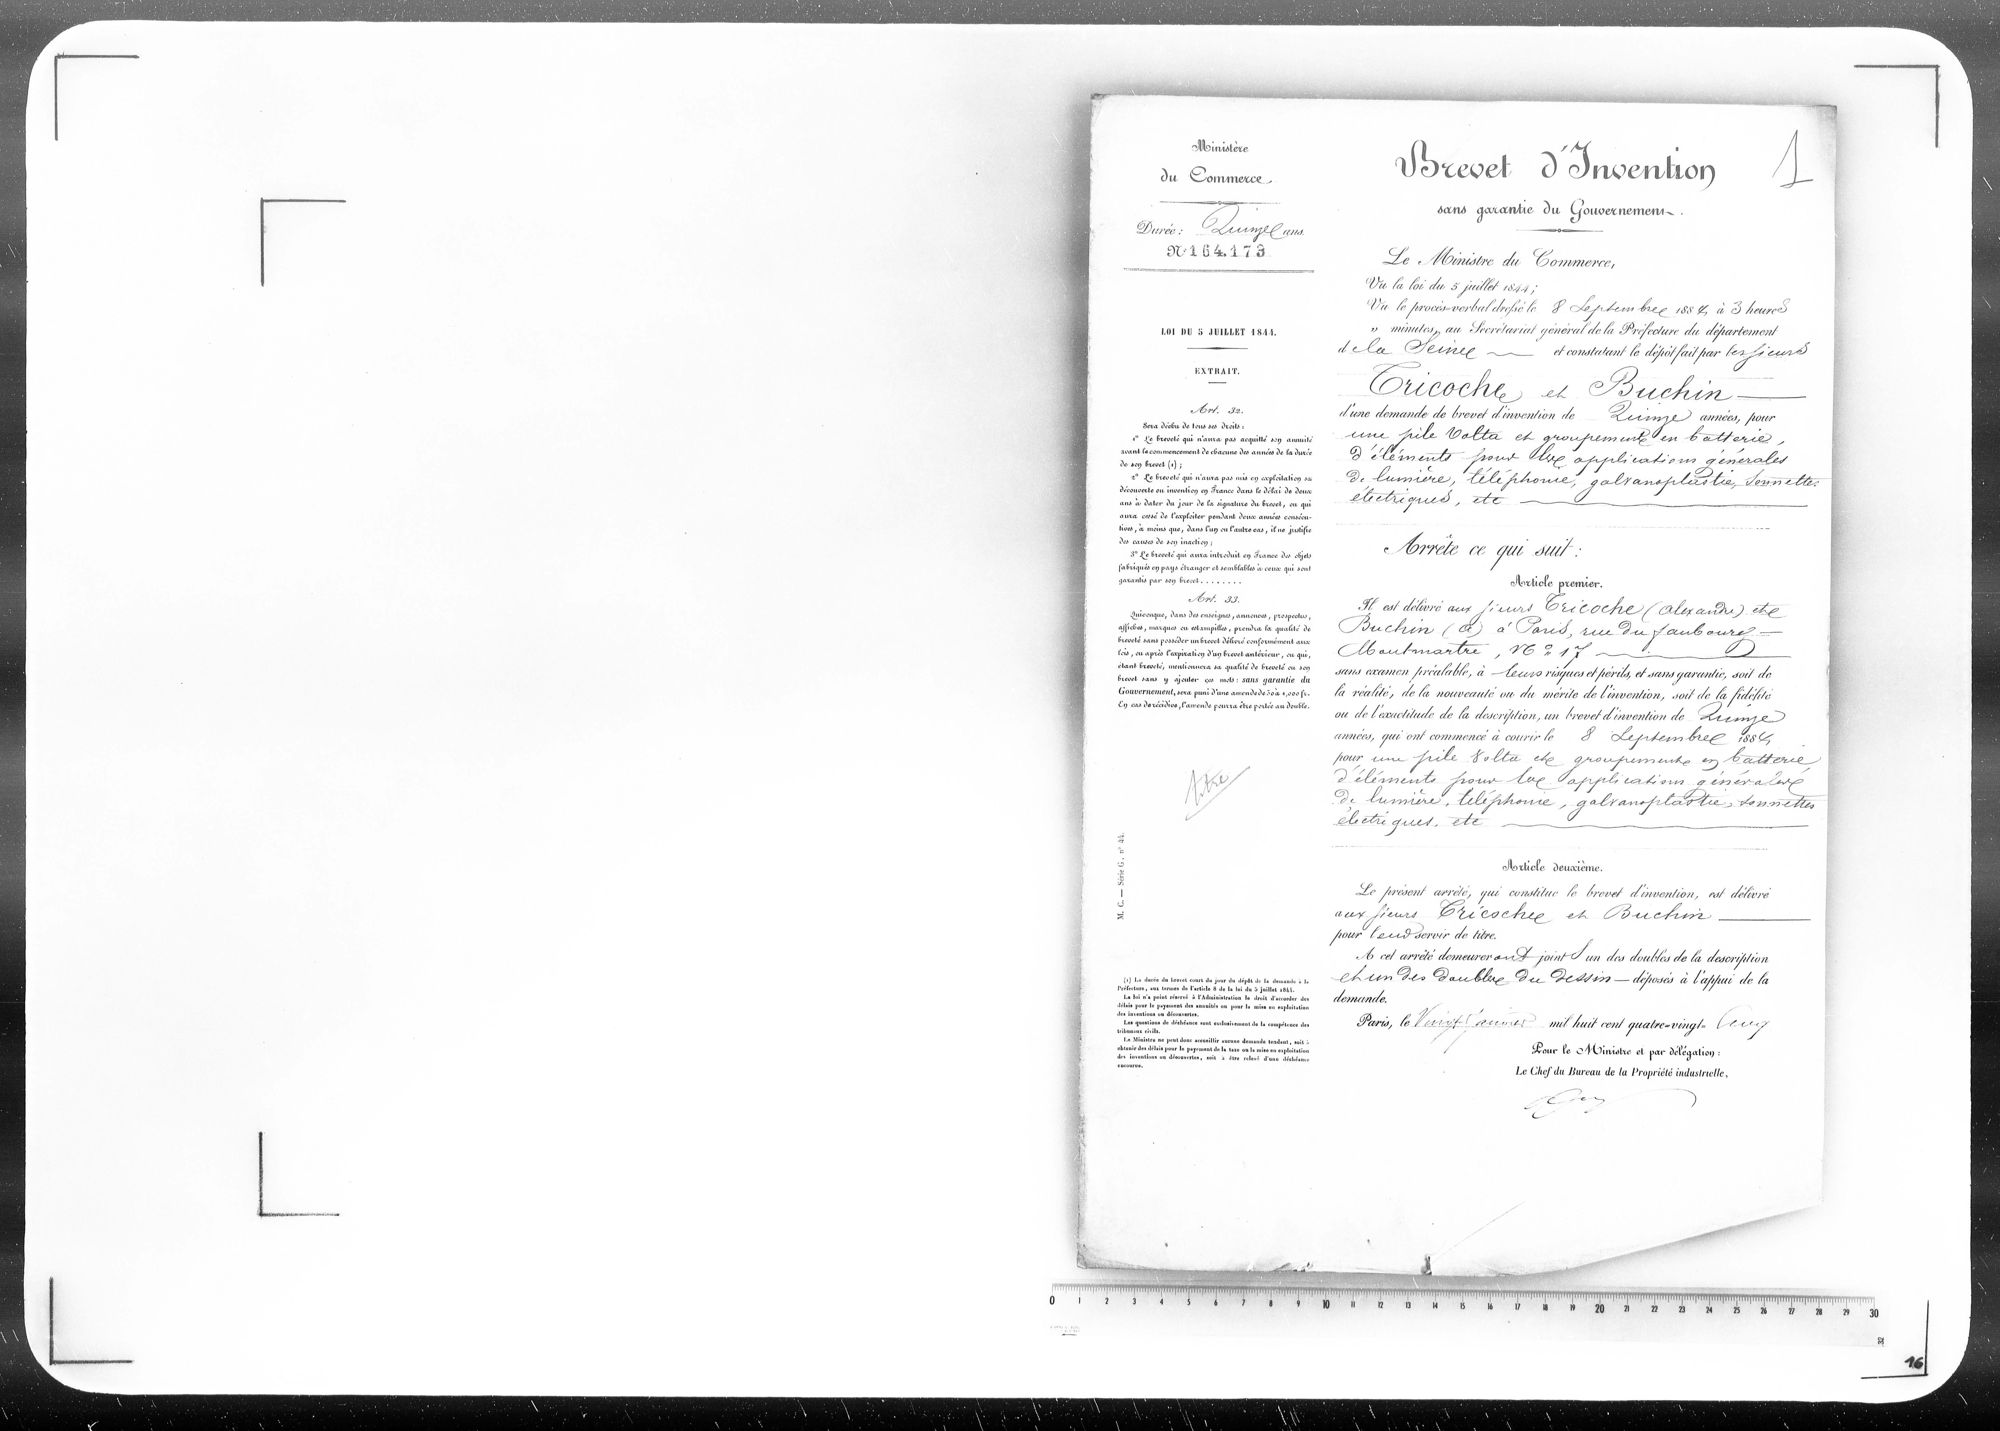 Ministère
du Commerce.
Durée : Quinze ans.
N° 164.173
LOI DU 5 JUILLET 1844.
EXTRAIT.
Art. 32.
Sera déchu de tous ses droits :
1° Le breveté qui n'aura pas acquitté son annuité
avant le commencement de chacune des années de la durée
de son brevet (1) ;
2° Le breveté qui n'aura pas mis en exploitation sa
découverte ou invention en France dans le délai de deux
ans à dater du jour de la signature du brevet, ou qui
aura cessé de l'exploiter pendant deux années consécu-
tives, à moins que, dans l'un ou l'autre cas, il ne justifie
des causes de son inaction ;
3° Le breveté qui aura introduit en France des objets
fabriqués en pays étranger et semblables à ceux qui sont
garantis par son brevet . . . . . . . .
Art. 33.
Quiconque, dans des enseignes, annonces, prospectus,
affiches, marques ou estampilles, prendra la qualité de
breveté sans posséder un brevet délivré conformément aux
lois, ou après l'expiration d'un brevet antérieur, ou qui,
étant breveté, mentionnera sa qualité de breveté ou son
brevet sans y ajouter ces mots : sans garantie du
Gouvernement, sera puni d'une amende de 50 à 1,000 fr.
En cas de récidive, l'amende pourra être portée au double.
titre
M. C. — Série G, n° 44.
(1) La durée du brevet court du jour du dépôt de la demande à la
Préfecture, aux termes de l'article 8 de la loi du 5 juillet 1844.
La loi n'a point réservé à l'Administration le droit d'accorder des
délais pour le payement des annuités ou pour la mise en exploitation
des inventions ou découvertes.
Les questions de déchéance sont exclusivement de la compétence des
tribunaux civils.
Le Ministre ne peut donc accueillir aucune demande tendant, soit à
obtenir des délais pour le payement de la taxe ou la mise en exploitation
des inventions ou découvertes, soit à être relevé d'une déchéance
encourue.
Brevet d'Invention
1
sans garantie du Gouvernement.
Le Ministre du Commerce,
Vu la loi du 5 juillet 1844 ;
Vu le procès-verbal dressé le 8 Septembre 1884, à 3 heures
" minutes, au Secrétariat général de la Préfecture du département
de la Seine et constatant le dépôt fait par les sieurs
Tricoche et Buchin
d'une demande de brevet d'invention de Quinze années, pour
une pile Volta et groupements en batterie,
d'éléments pour les applications générales
de lumière, téléphonie, galvanoplastie, sonnettes
électriques, etc
Arrête ce qui suit :
Article premier.
Il est délivré aux sieurs Tricoche (Alexandre) et
Buchin à Paris, rue du faubourg
Montmartre, N° 17
sans examen préalable, à leurs risques et périls, et sans garantie, soit de
la réalité, de la nouveauté ou du mérite de l'invention, soit de la fidélité
ou de l'exactitude de la description, un brevet d'invention de Quinze
années, qui ont commencé à courir le 8 Septembre 1884,
pour une pile Volta et groupements en batterie
d'éléments pour les applications générales
de lumière, téléphonie, galvanoplastie, sonnettes
électriques, etc
Article deuxième.
Le présent arrêté, qui constitue le brevet d'invention, est délivré
aux sieurs Tricoche et Buchin
pour leur servir de titre.
A cet arrêté demeureront joints un des doubles de la description
et un des doubles du dessin — déposés à l'appui de la
demande.
Paris, le Vingt Janvier mil huit cent quatre-vingt-cinq
Pour le Ministre et par délégation :
Le Chef du Bureau de la Propriété industrielle,
0 1 2 3 4 5 6 7 8 9 10 11 12 13 14 15 16 17 18 19 20 21 22 23 24 25 26 27 28 29 30
16